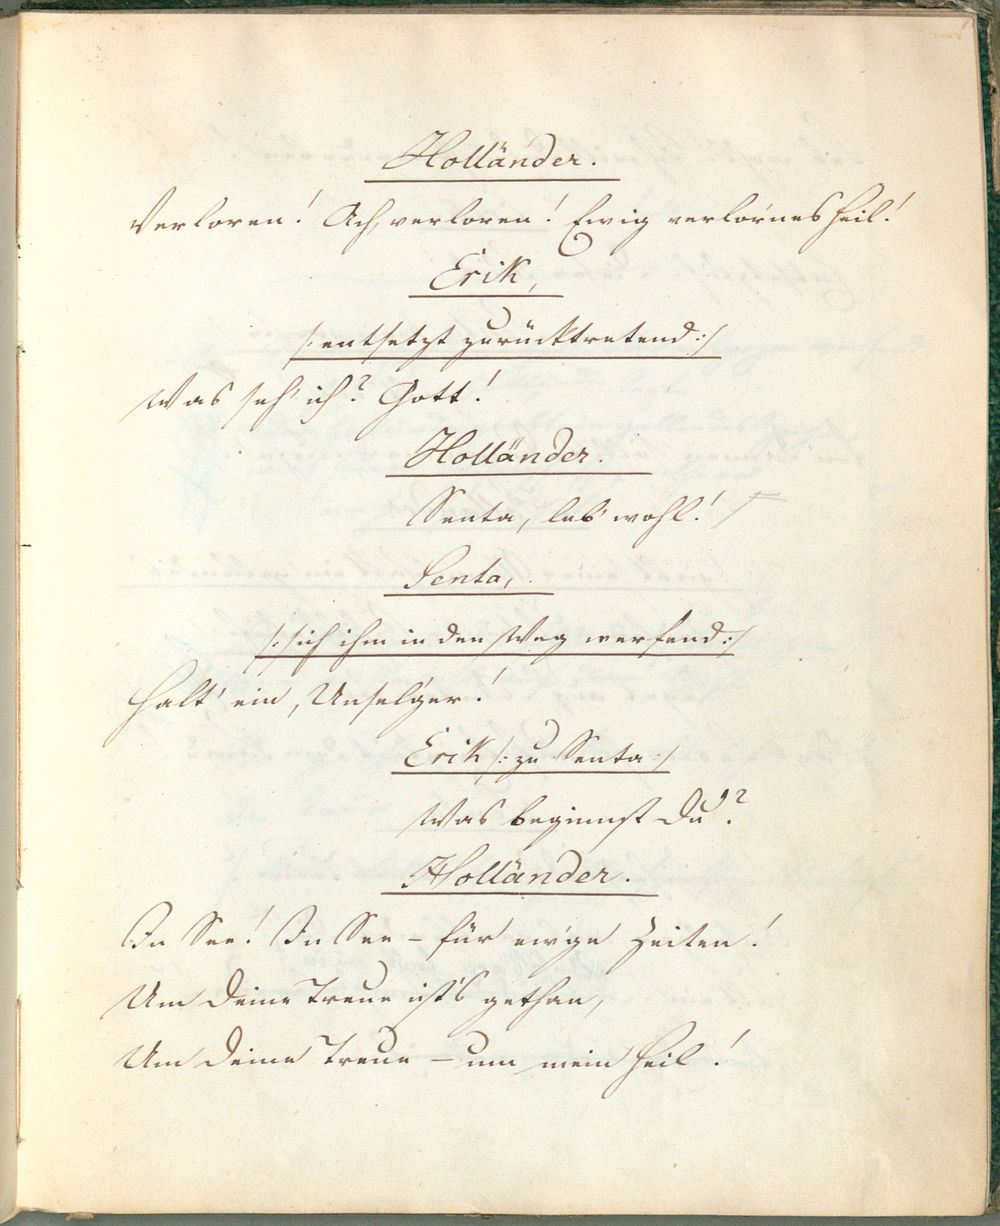 Holländer.
Verloren! Ach, verloren! Ewig verlor'nes Heil!
Erik,
/: entsetzt zurücktretend :/
Was seh' ich? Gott!
Holländer.
Senta, leb' wohl!
Senta,
/: sich ihm in den Weg werfend :/
Halt' ein, Unsel'ger!
Erik /: zu Senta :/
Was beginnst Du?
Holländer.
In See! In See – für ew'ge Zeiten!
Um Deine Treue ist's gethan,
Um Deine Treue – um mein Heil!